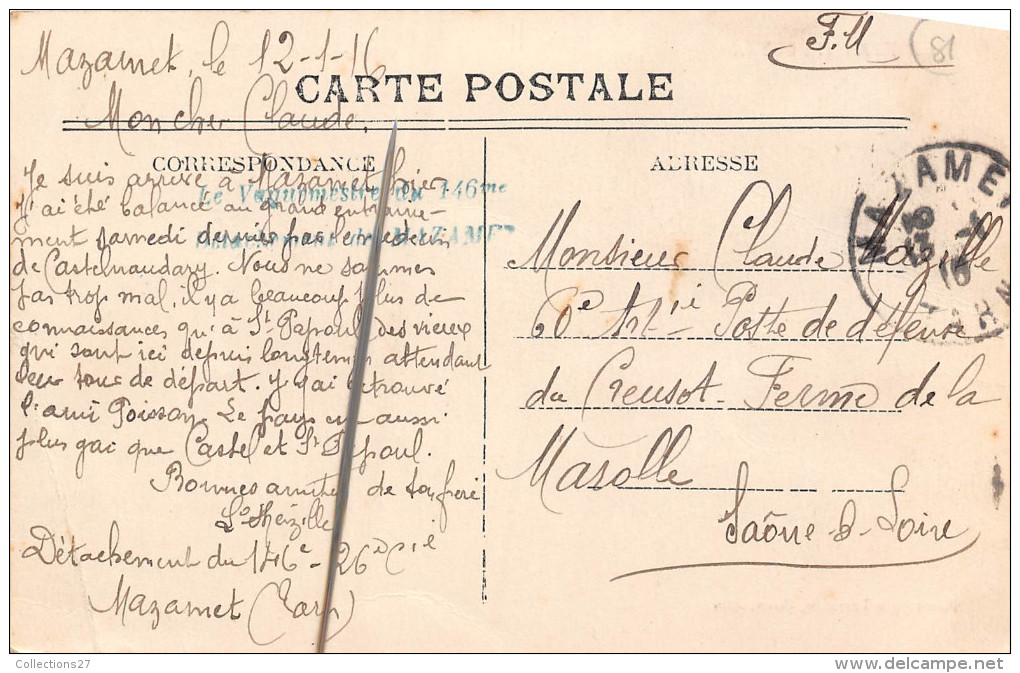 F.M
81
Mazamet, le 12-1-16
CARTE POSTALE
Mon cher Claude,
CORRESPONDANCE
Je suis arrivé à Mazamet hier
J'ai été balancé au grand entraine-
ment samedi dernier par le médecin
de Castelnaudary. Nous ne sommes
pas trop mal, il y a beaucoup plus de
connaissances qu'à St Papoul, des vieux
qui sont ici depuis longtemps attendant
leur tour de départ. J'y ai retrouvé
l'ami Poisson. Le pays est aussi
plus gai que Castel et St Papoul.
Bonnes amitiés de ton frère
Détachement du 146e - 26e Cie
Mazamet (Tarn)
Le Vaguemestre du 146me
Détachement de MAZAMET
ADRESSE
MAZAMET
TARN
Monsieur Claude Mazille
60e Art-ie Poste de défense
du Creusot. Ferme de la
Marolle
Saône-&-Loire
Collections27
delcampe.net